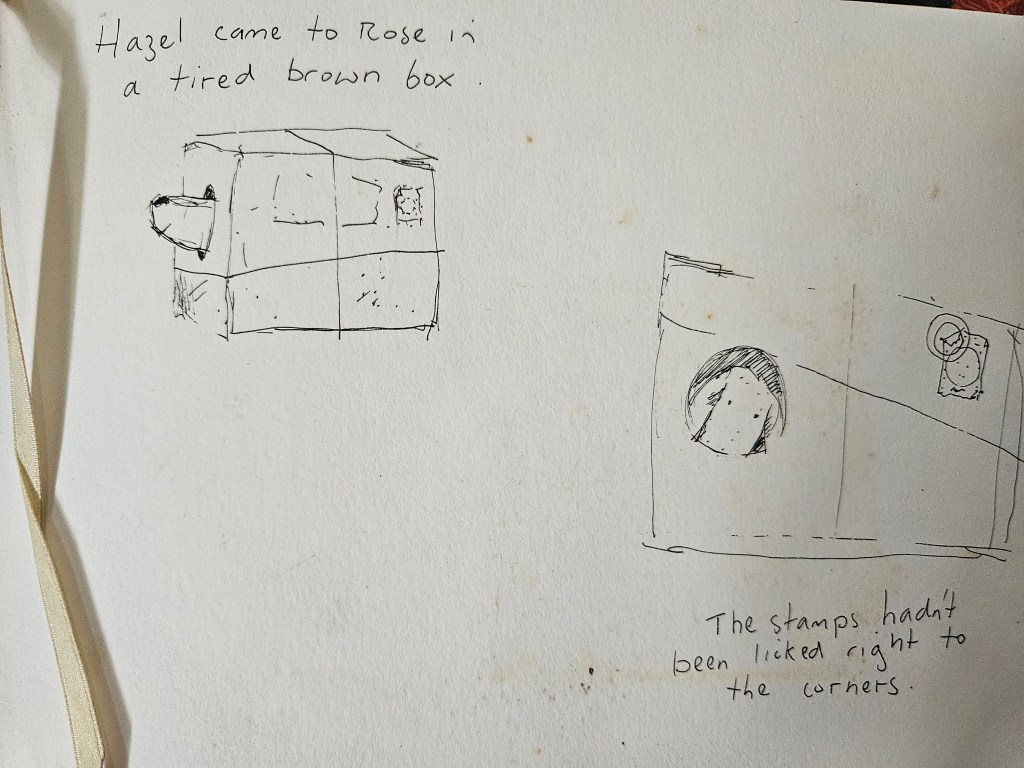 Hazel came to Rose in
a tired brown box.
The stamps hadn't
been licked right to
the corners.